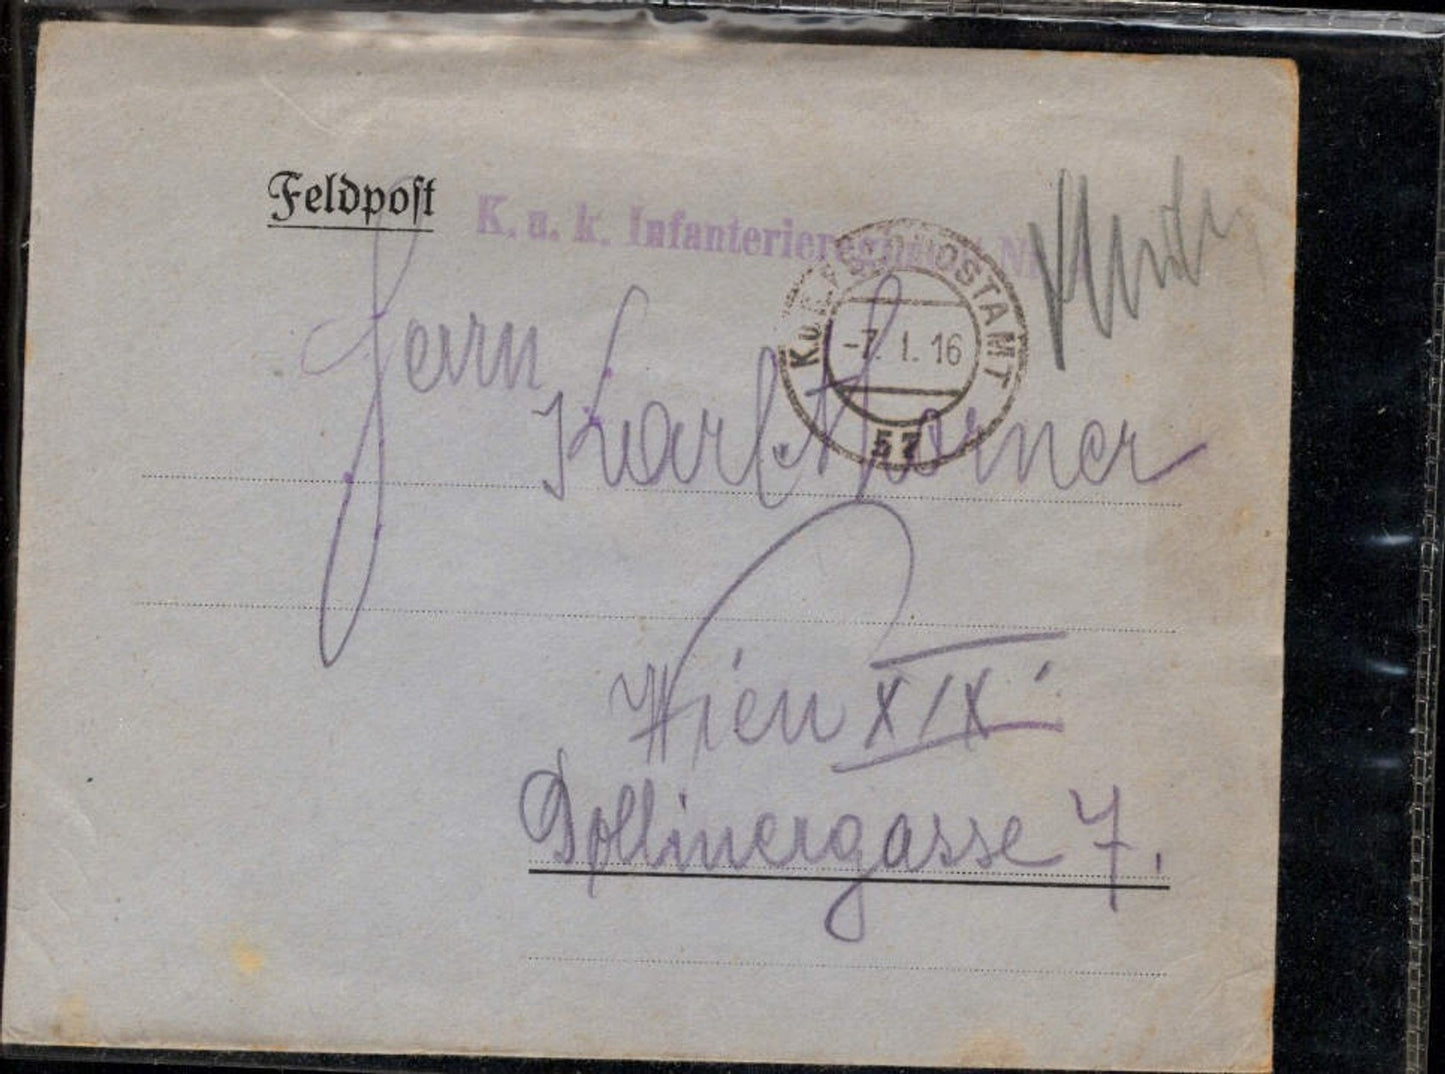 Feldpost
K. u. k. Infanterieregiment Nr
K. u. K. FELDPOSTAMT
-7. I. 16
57
Herrn
Karl
Wien XIX
Dollinergasse 7.